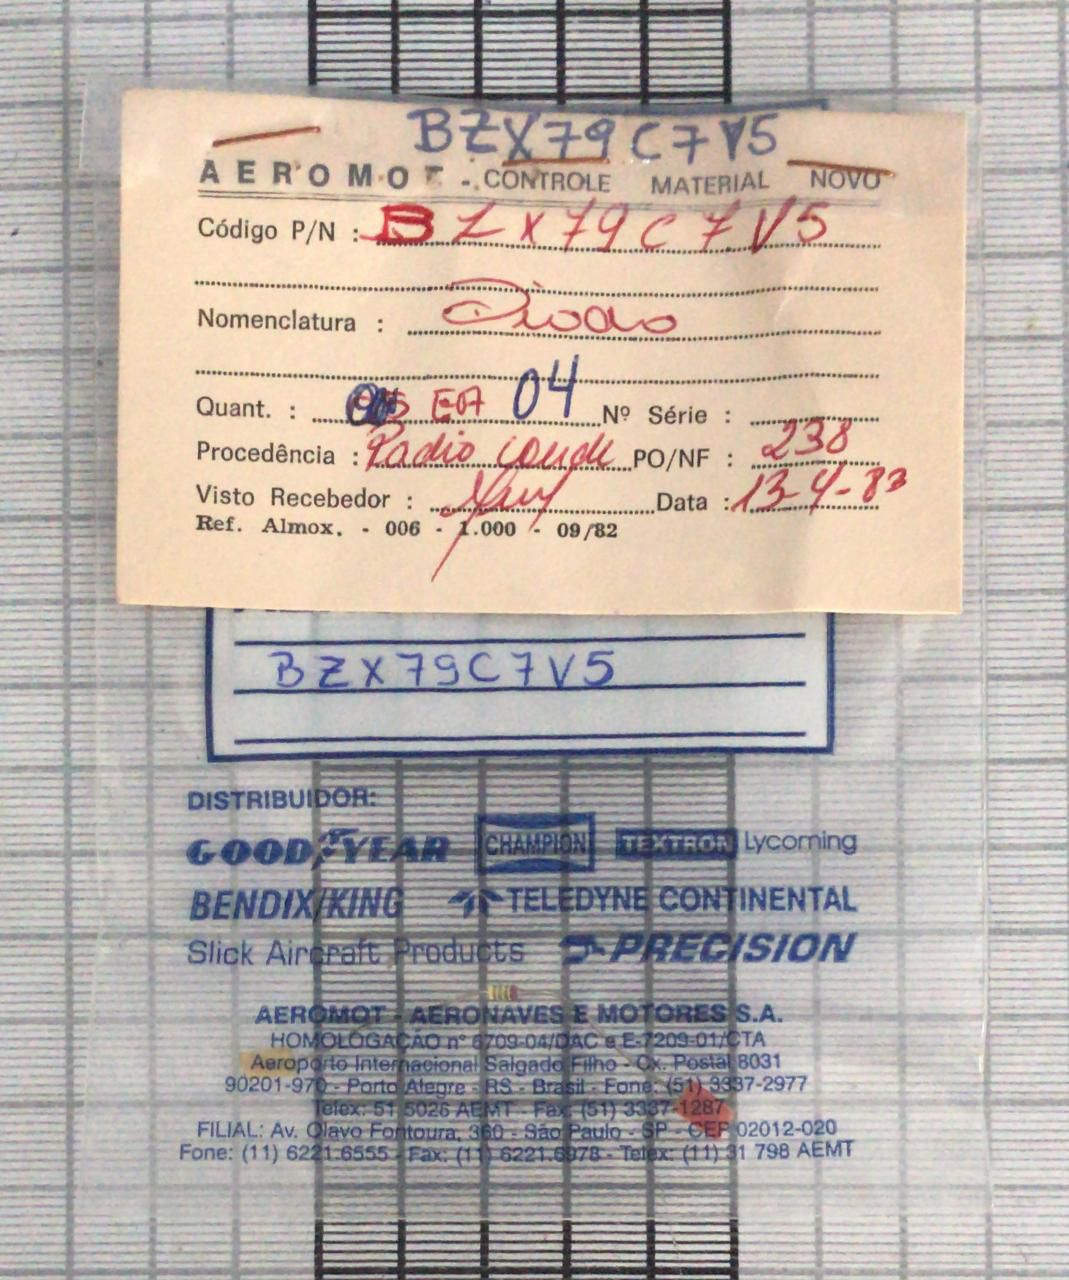 BZX79C7V5
AEROMOT - CONTROLE MATERIAL NOVO
Código P/N : BZX79C7V5
Nomenclatura : Diodo
Quant. : E07 04 Nº Série :
Procedência : Radio PO/NF : 238
Visto Recebedor : Data : 13-4-83
Ref. Almox. - 006 - 1.000 - 09/82
BZX79C7V5
DISTRIBUIDOR:
GOODYEAR CHAMPION TEXTRON Lycoming
BENDIX/KING TELEDYNE CONTINENTAL
Slick Aircraft Products PRECISION
AEROMOT - AERONAVES E MOTORES S.A.
HOMOLOGAÇÃO nº 6709-04/DAC e E-7209-01/CTA
Aeroporto Internacional Salgado Filho - Cx. Postal 8031
90201-970 - Porto Alegre - RS - Brasil - Fone: (51) 3337-2977
Telex: 51 5026 AEMT - Fax: (51) 3337-1287
FILIAL: Av. Olavo Fontoura, 360 - São Paulo - SP - CEP 02012-020
Fone: (11) 6221.6555 - Fax: (11) 6221.6978 - Telex: (11) 31 798 AEMT